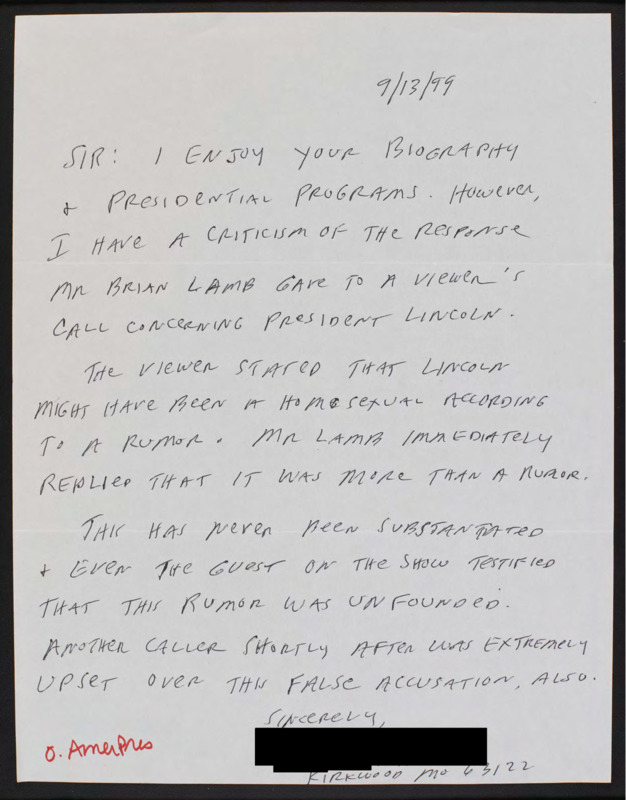 9/13/99
SIR: I ENJOY YOUR BIOGRAPHY
& PRESIDENTIAL PROGRAMS. HOWEVER,
I HAVE A CRITICISM OF THE RESPONSE
MR BRIAN LAMB GAVE TO A VIEWER'S
CALL CONCERNING PRESIDENT LINCOLN.
THE VIEWER STATED THAT LINCOLN
MIGHT HAVE BEEN A HOMOSEXUAL ACCORDING
TO A RUMOR. MR LAMB IMMEDIATELY
REPLIED THAT IT WAS MORE THAN A RUMOR.
THIS HAS NEVER BEEN SUBSTANTIATED
& EVEN THE GUEST ON THE SHOW TESTIFIED
THAT THIS RUMOR WAS UNFOUNDED.
ANOTHER CALLER SHORTLY AFTER WAS EXTREMELY
UPSET OVER THIS FALSE ACCUSATION, ALSO.
SINCERELY,
O. AmerPres
KIRKWOOD MO 63122